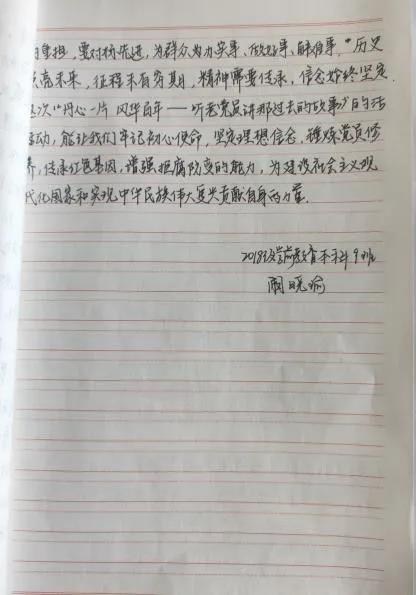 的重担，要对标先进，为群众为力实事、做好事、解难事。“历史
点亮未来，征程未有穷期，精神需要传承，信念始终坚定。
这次“丹心一片 风华百年——听老党员讲那过去的故事》的活
动，能让我们牢记初心使命，坚定理想信念，锤炼党员修
养，传承红色基因，增强拒腐防变的能力，为建设社会主义现
代化国家和实现中华民族伟大复兴贡献自身的力量。
2019级学前教育本科9班
阚晓瑜